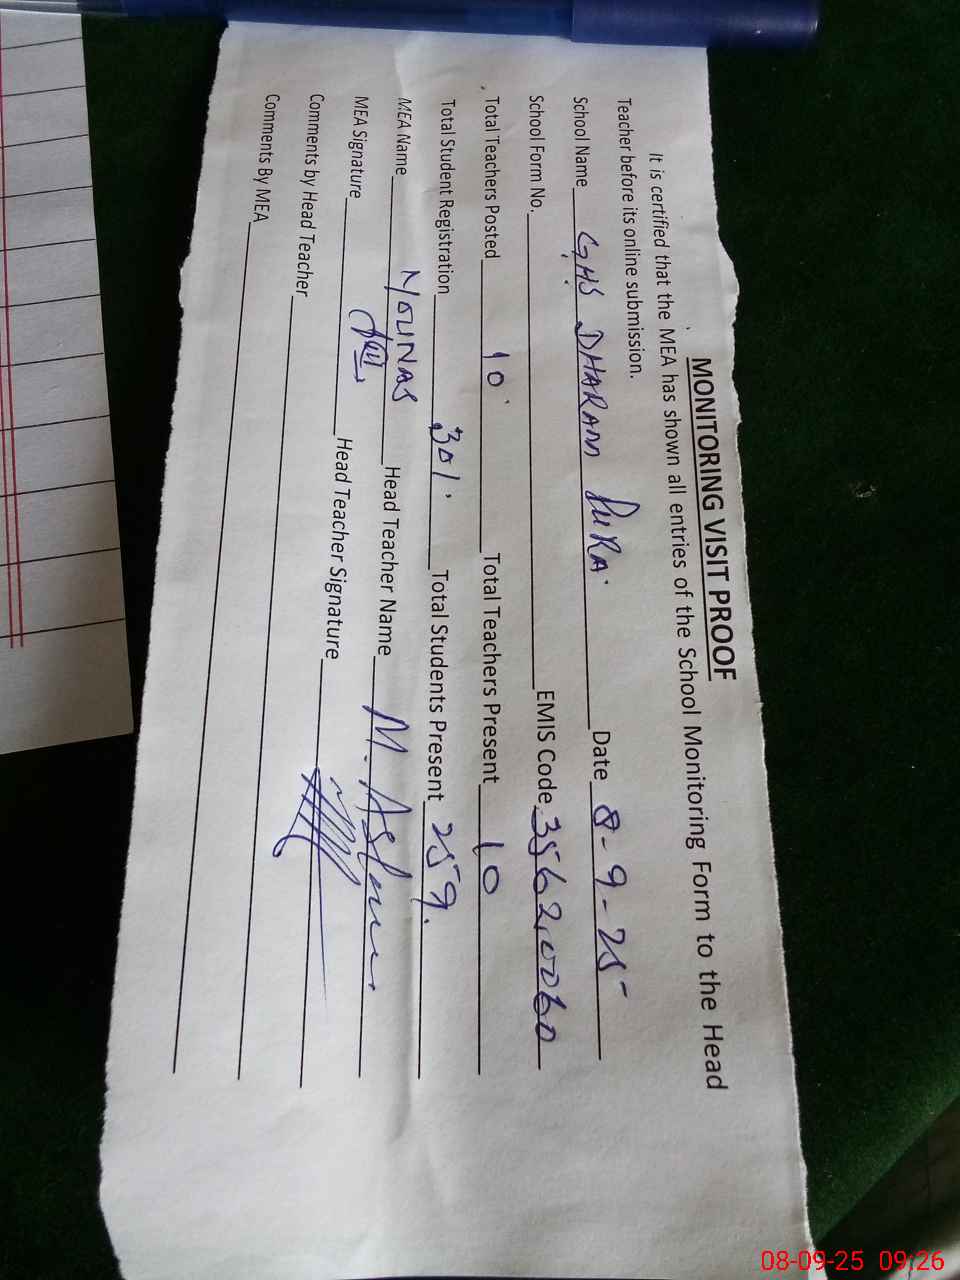 MONITORING VISIT PROOF
It is certified that the MEA has shown all entries of the School Monitoring Form to the Head
Teacher before its online submission.
School Name GHS DHARAM PURA Date 8-9-25
School Form No. EMIS Code 35620060
Total Teachers Posted 10 Total Teachers Present 10
Total Student Registration 301 Total Students Present 259
MEA Name YOUNAS Head Teacher Name M. Aslam
MEA Signature Head Teacher Signature
Comments by Head Teacher
Comments By MEA
08-09-25 09:26